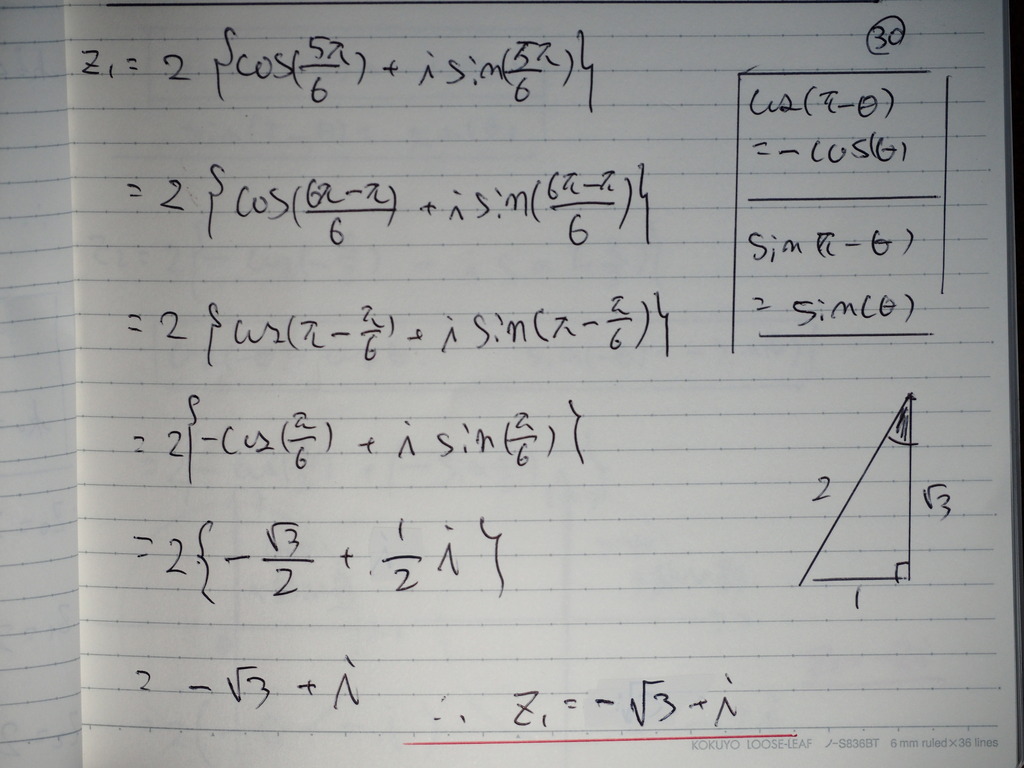 30
z₁ = 2 {cos(5π/6) + i sin(5π/6)}
= 2 {cos((6π-π)/6) + i sin((6π-π)/6)}
= 2 {cos(π - π/6) + i sin(π - π/6)}
= 2{-cos(π/6) + i sin(π/6)}
= 2{- √3/2 + 1/2 i}
= -√3 + i
∴ z₁ = -√3 + i
cos(π-θ)
= -cos(θ)
sin(π-θ)
= sin(θ)
2
√3
1
KOKUYO LOOSE-LEAF ノ-S836BT 6 mm ruled×36 lines